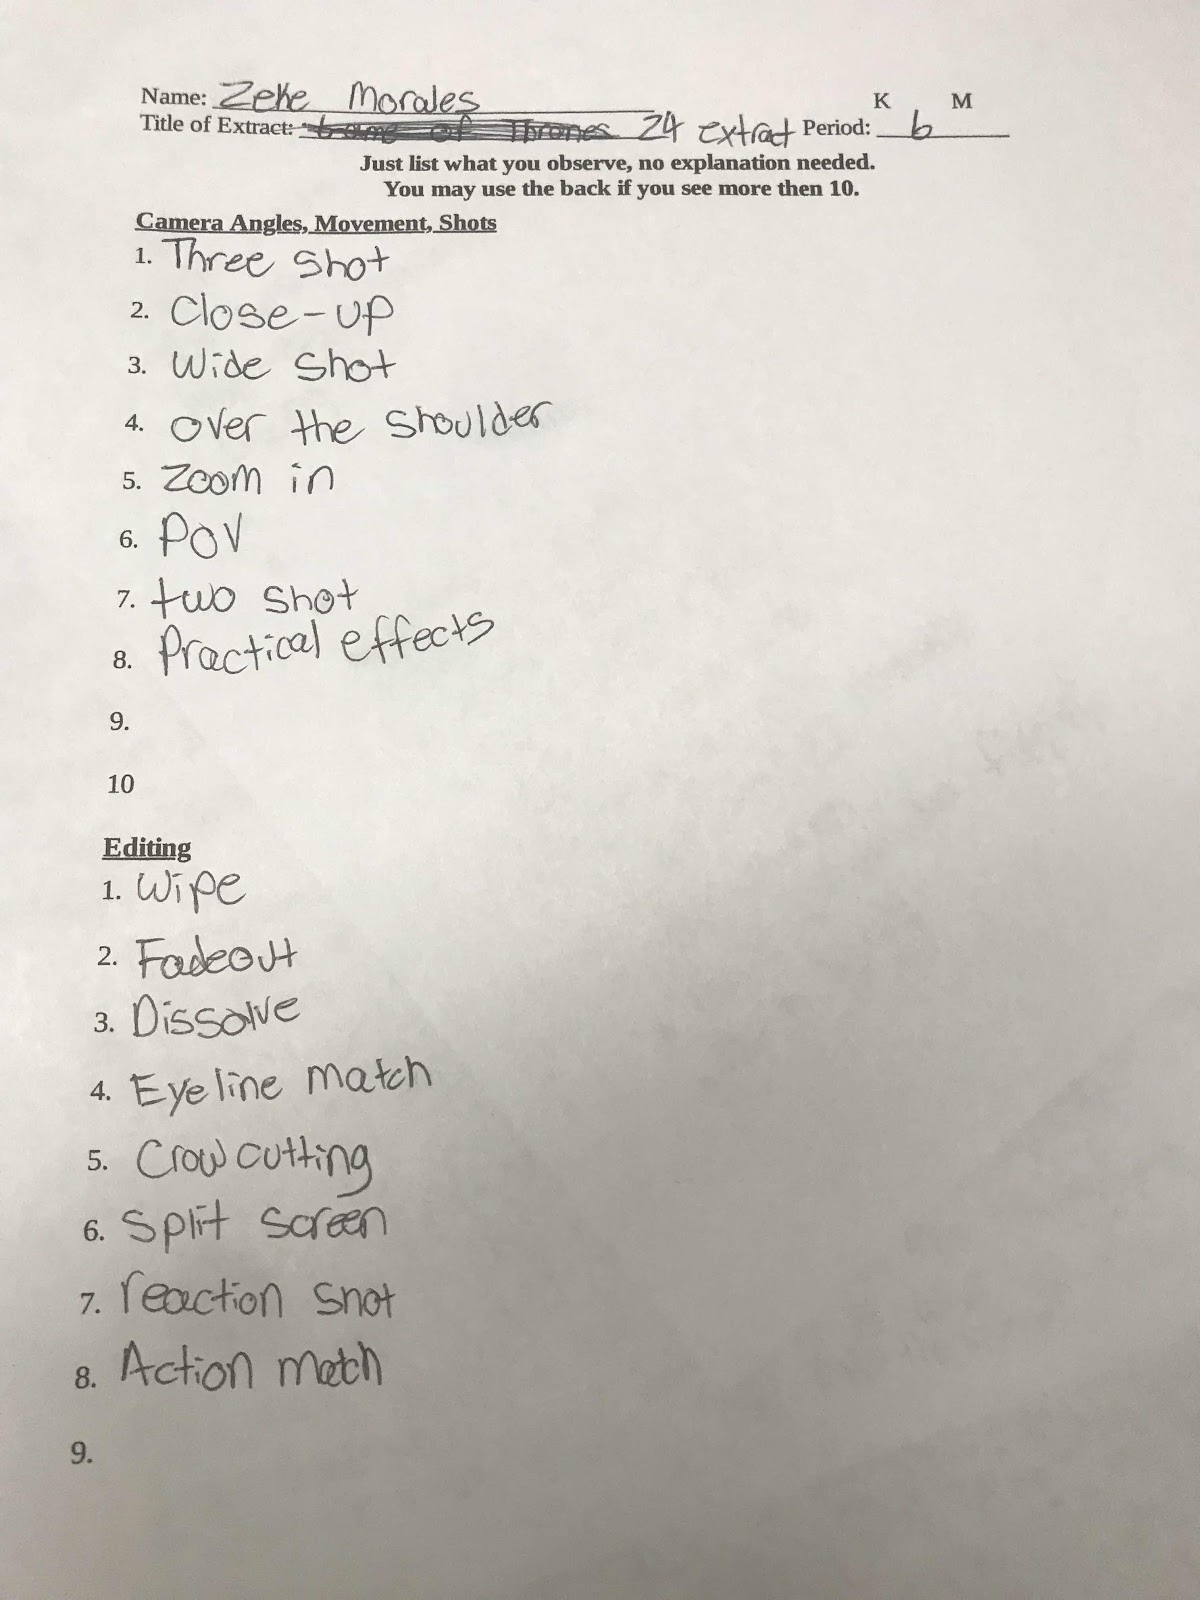 Name: Zeke Morales K M
Title of Extract: Game of Thrones 24 extrat Period: 6
Just list what you observe, no explanation needed.
You may use the back if you see more then 10.
Camera Angles, Movement, Shots
1. Three shot
2. Close-up
3. Wide shot
4. over the shoulder
5. Zoom in
6. POV
7. two shot
8. Practical effects
9.
10
Editing
1. Wipe
2. Fadeout
3. Dissolve
4. Eyeline match
5. Crow cutting
6. Split screen
7. reaction shot
8. Action match
9.